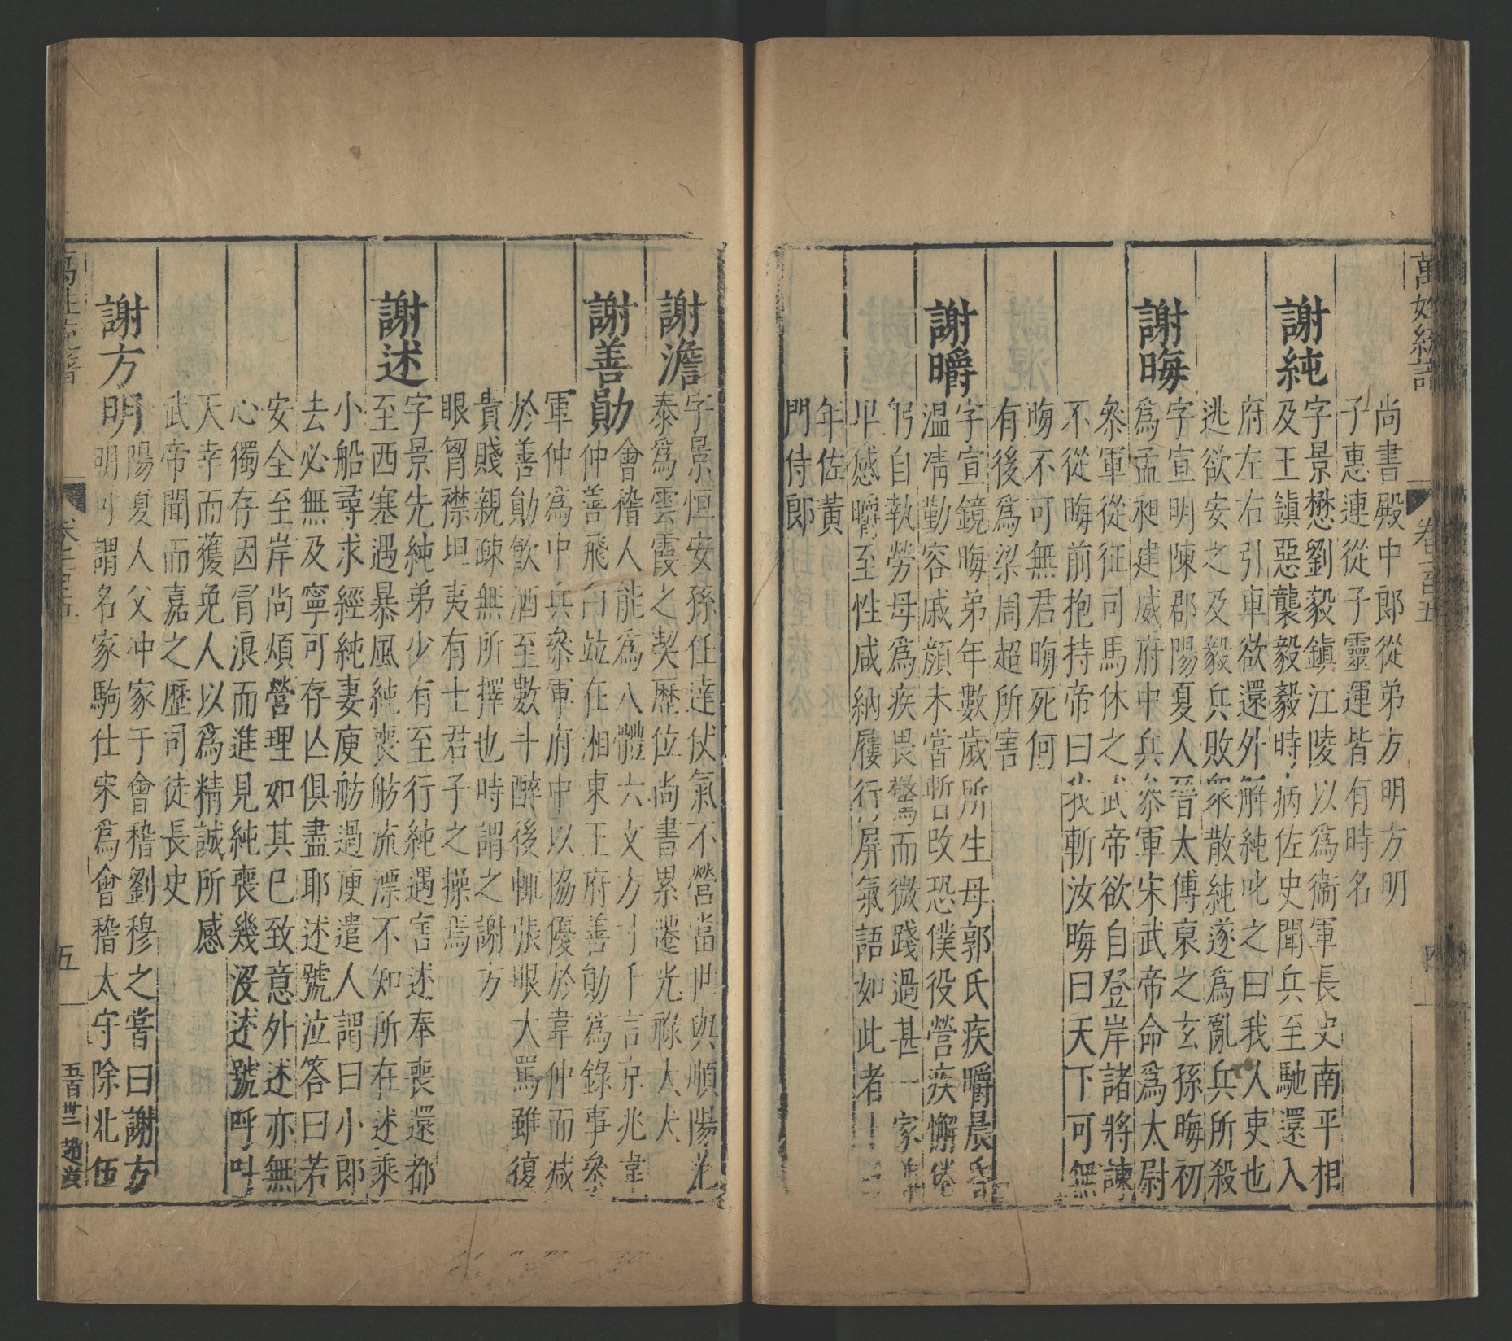 萬姓統譜
卷一百五
四
尚書殿中郎從弟方明方明
子惠連從子靈運皆有時名
謝純
字景懋劉毅鎮江陵以為衞軍長史南平相
及王鎮惡襲毅毅時病佐史聞兵至馳還入
府左右引車欲還外解純叱之曰我人吏也
逃欲安之及毅兵敗衆散純遂為亂兵所殺
謝晦
字宣明陳郡陽夏人晉太傅裒之玄孫晦初
為孟昶建威府中兵叅軍宋武帝命為太尉
叅軍從征司馬休之武帝欲自登岸諸將諫
不從晦前抱持帝曰我斬汝晦曰天下可無
晦不可無君晦死何
有後為梁周超所害
謝㬭
字宣鏡晦弟年數歲所生母郭氏疾㬭晨昏
温凊勤容戚顏未嘗暫改恐僕役營疾懈倦
躬自執勞母為疾畏驚而微踐過甚一家
早感㬭至性咸納屨行屏氣語如此者十
年佐黃
門侍郎
謝澹
字景恒安孫任達仗氣不營當世與順陽范
泰為雲霞之契歷位尚書累遷光祿大夫
謝善勛
會稽人能為八體六文方寸千言京兆韋
仲善飛白並在湘東王府善勛為錄事叅
軍仲為中兵叅軍府中以協優於韋仲而减
於善勛飲酒至數斗醉後輒張眼大罵雖復
貴賤親疎無所擇也時謂之謝方
眼胷襟坦夷有士君子之操焉
謝述
字景先純弟少有至行純遇害述奉喪還都
至西塞遇暴風純喪舫流漂不知所在述乘
小船尋求經純妻庾舫過庾遣人謂曰小郎
去必無及寧可存亾俱盡耶述號泣答曰若
安全至岸尚煩營理如其已致意外述亦無
心獨存因冐浪而進見純喪幾沒述號呼叫
天幸而獲免人以為精誠所感
武帝聞而嘉之歷司徒長史
謝方明
陽夏人父冲家于會稽劉穆之嘗曰謝方
明可謂名家駒仕宋為會稽太守除北伍
五
五百卅二